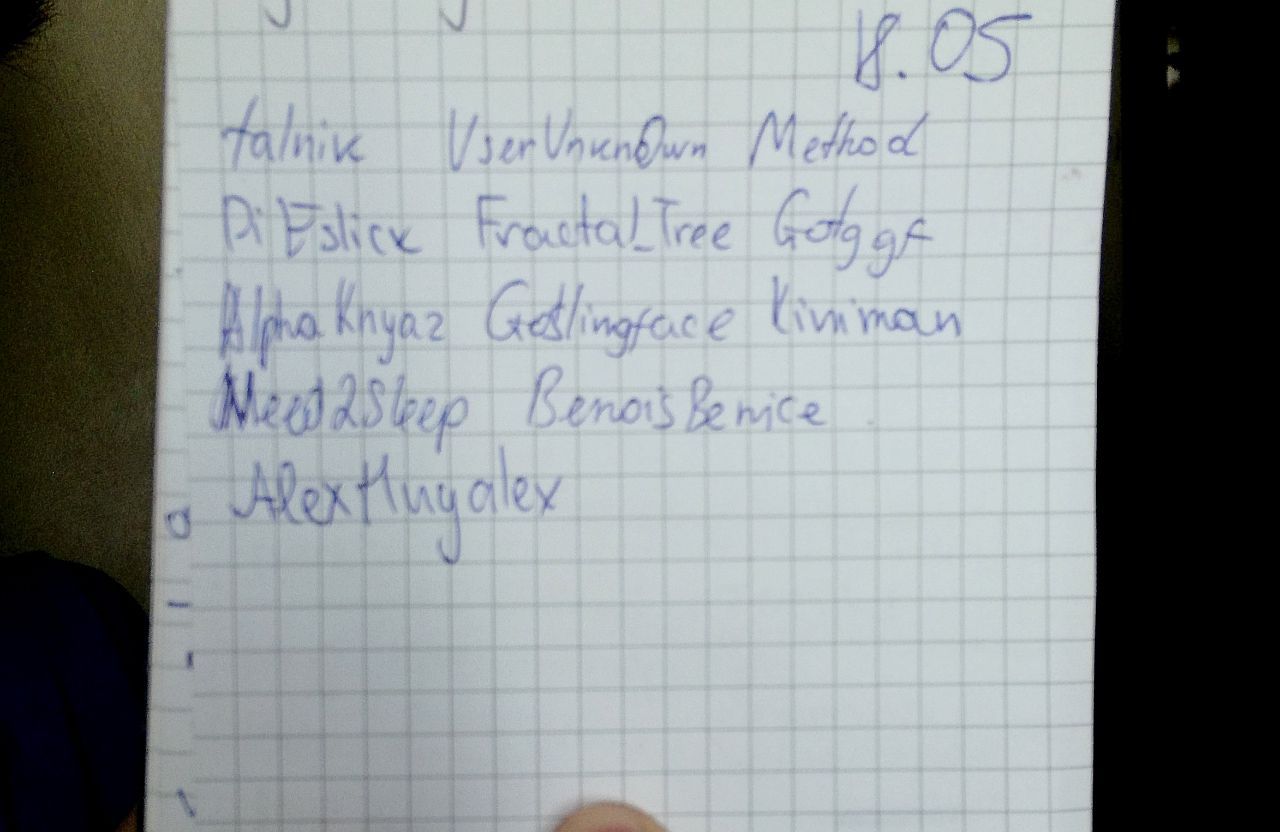 18.05
talnik UserUnknOwn Method
Fractal_Tree
AlphaKnyaz Geslingface Kiviman
Need2Sleep BenoisBenice
AlexHuyalex